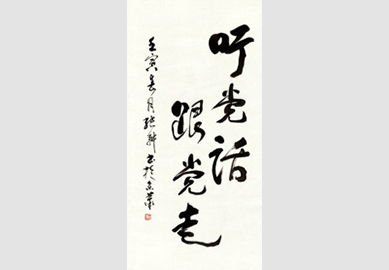 听党话
跟党走
壬寅春月张继书于京华